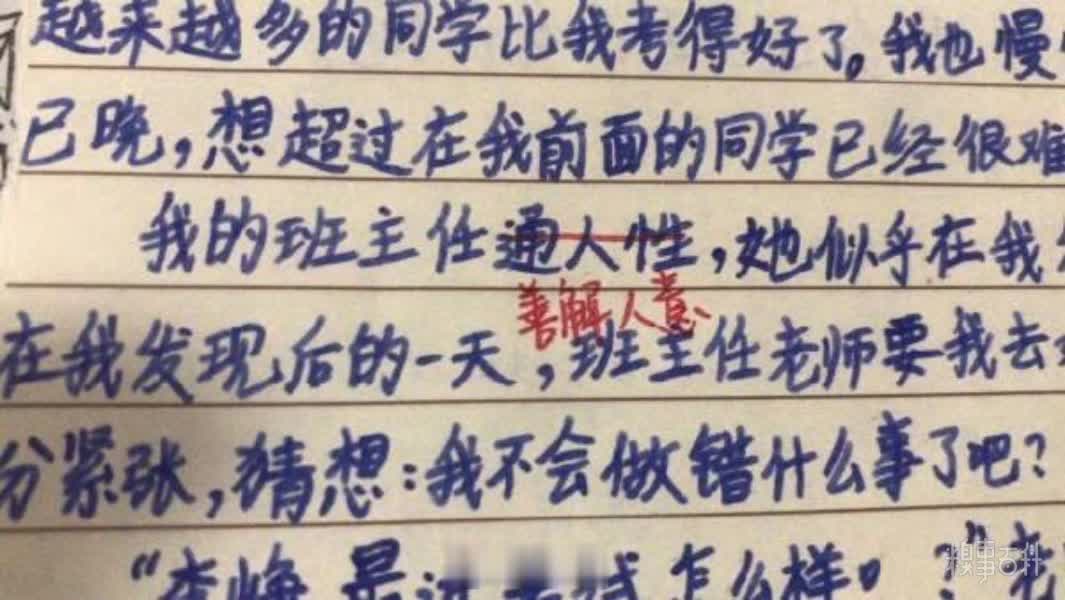 越来越多的同学比我考得好了。我也慢
已晚,想超过在我前面的同学已经很难
我的班主任通人性,她似乎在我
善解人意
在我发现后的一天,班主任老师要我去
分紧张,猜想:我不会做错什么事了吧?
怎么样
糗事百科